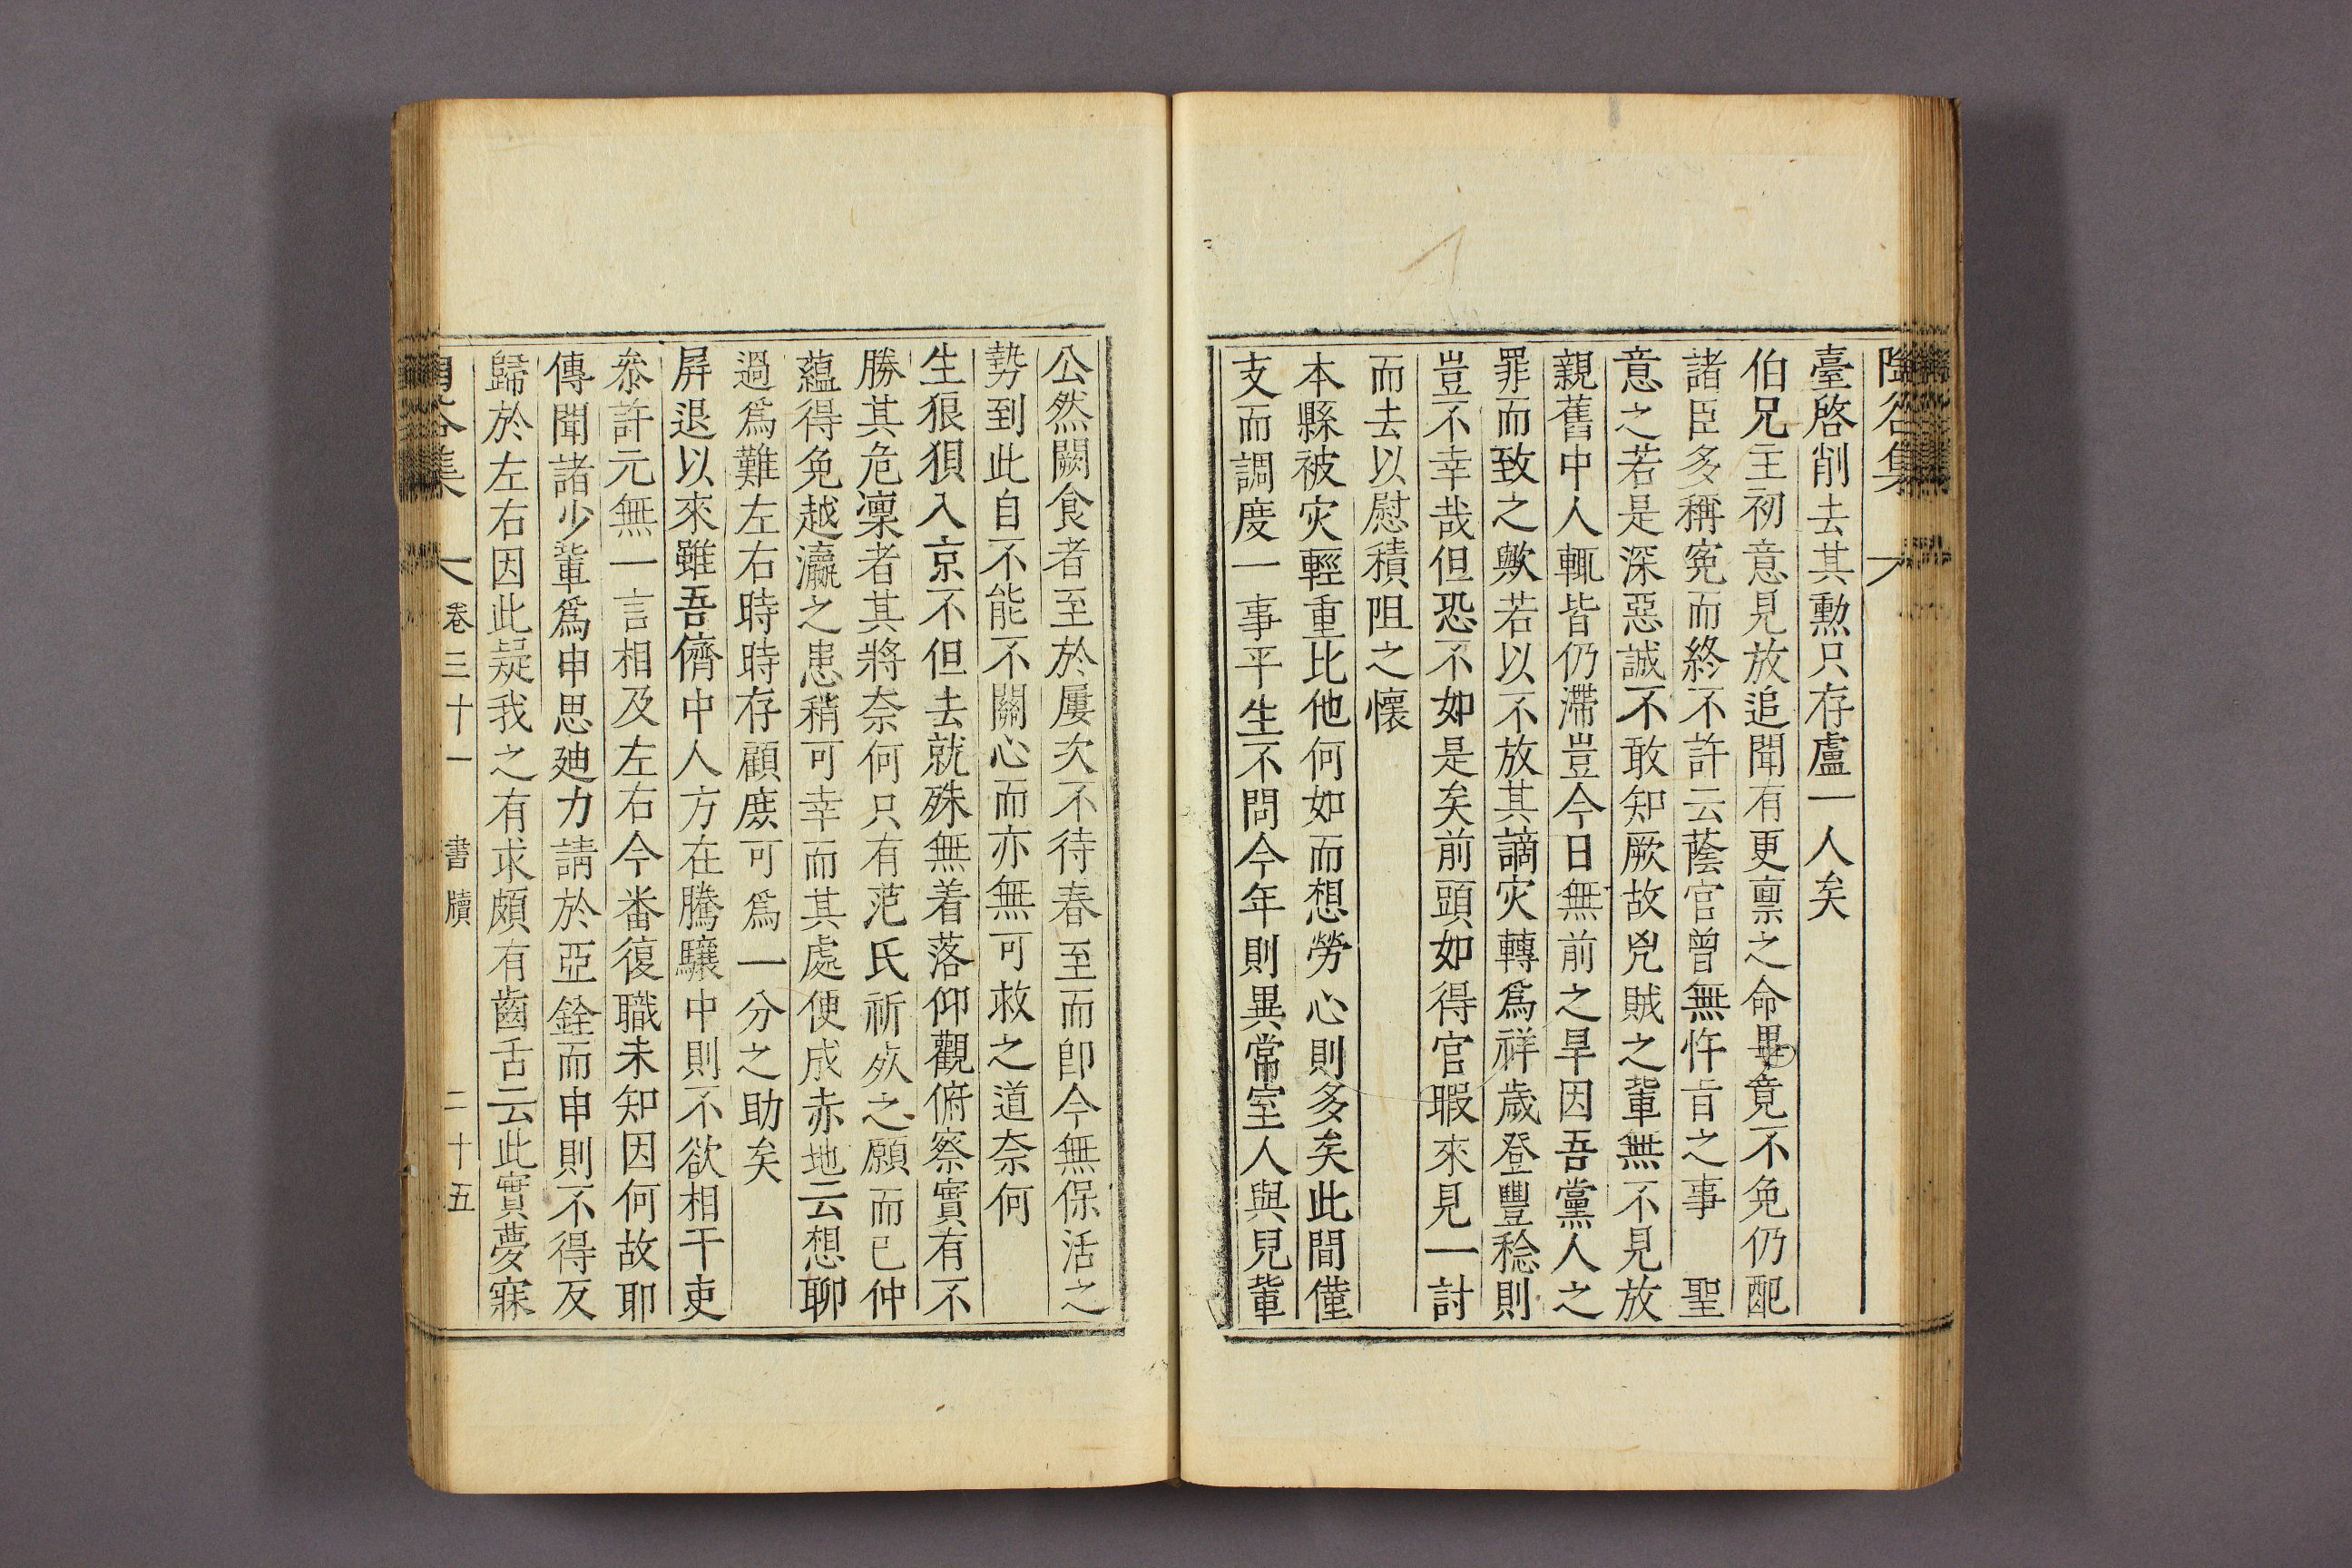 陶谷集
臺啓削去其勲只存盧一人矣
伯兄主初意見放追聞有更禀之命畢竟不免仍配
諸臣多稱寃而終不許云蔭官曾無忤旨之事 聖
意之若是深惡誠不敢知厥故兇賊之輩無不見放
親舊中人輒皆仍滯豈今日無前之旱因吾黨人之
罪而致之歟若以不放其謫灾轉爲祥歲登豐稔則
豈不幸哉但恐不如是矣前頭如得官暇來見一討
而去以慰積阻之懷
本縣被灾輕重比他何如而想勞心則多矣此間僅
支而調度一事平生不問今年則異常室人與兒輩
公然闕食者至於屢次不待春至而卽今無保活之
勢到此自不能不關心而亦無可救之道奈何
生狼狽入京不但去就殊無着落仰觀俯察實有不
勝其危凜者其將奈何只有范氏祈死之願而已仲
蘊得免越瀛之患稍可幸而其處便成赤地云想聊
過爲難左右時時存顧庶可爲一分之助矣
屛退以來雖吾儕中人方在騰驤中則不欲相干吏
叅許元無一言相及左右今番復職未知因何故耶
傳聞諸少輩爲申思廸力請於亞銓而申則不得反
歸於左右因此疑我之有求頗有齒舌云此實夢寐
陶谷集 卷三十一 書牘 二十五